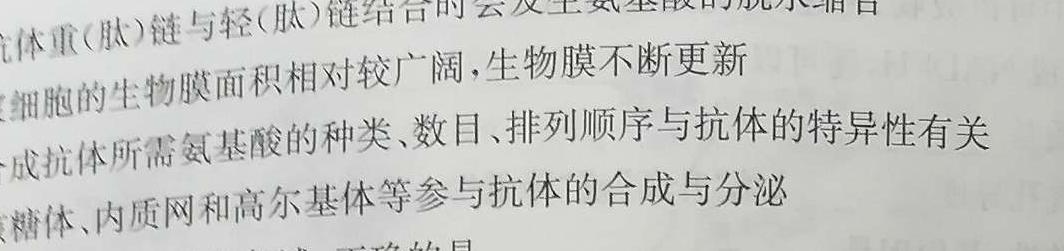 体重(肽)链与轻(肽)链结合时会发生氨基酸的脱水缩合
细胞的生物膜面积相对较广阔,生物膜不断更新
成抗体所需氨基酸的种类、数目、排列顺序与抗体的特异性有关
糖体、内质网和高尔基体等参与抗体的合成与分泌
正确的是